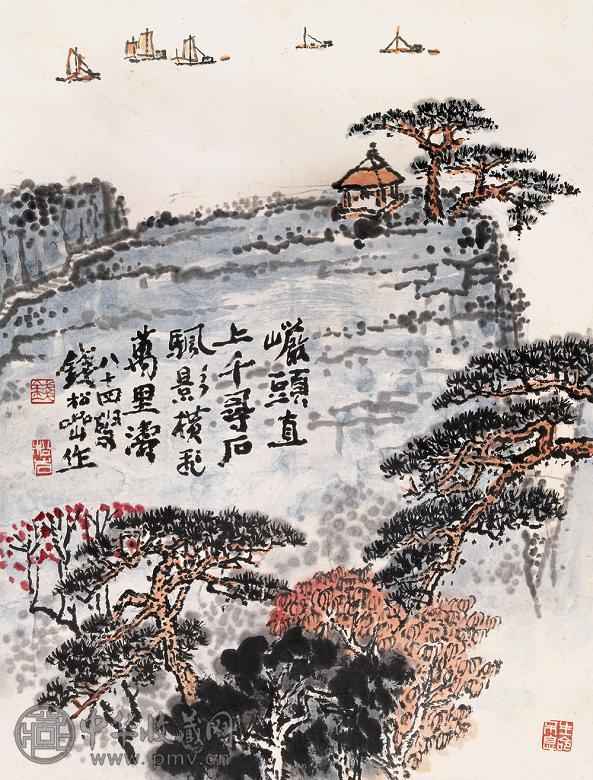 巖頭直
上千尋石
颿影橫飛
萬里濤
八十四叟
錢松喦作
錢
中华收藏网
www.pmv.cn